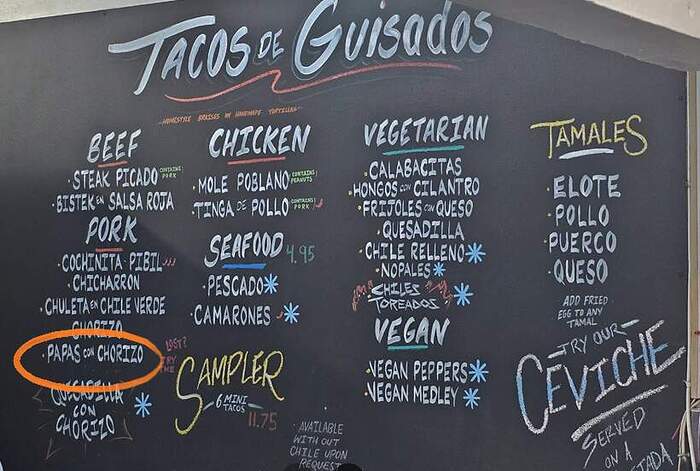 TACOS DE GUISADOS
HOMESTYLE BRAISES ON HANDMADE TORTILLAS
BEEF
STEAK PICADO CONTAINS PORK
BISTEK EN SALSA ROJA
PORK
COCHINITA PIBIL
CHICHARRÓN
CHULETA EN CHILE VERDE
CHORIZO
PAPAS CON CHORIZO
QUESADILLA
CON
CHORIZO
CHICKEN
MOLE POBLANO CONTAINS PEANUTS
TINGA DE POLLO CONTAINS PORK
SEAFOOD 4.95
PESCADO
CAMARONES
LOST?
TRY
THE
SAMPLER
6 MINI
TACOS 11.75
AVAILABLE
WITH OUT
CHILE UPON
REQUEST
VEGETARIAN
CALABACITAS
HONGOS CON CILANTRO
FRIJOLES CON QUESO
QUESADILLA
CHILE RELLENO
NOPALES
CHILES
TOREADOS
VEGAN
VEGAN PEPPERS
VEGAN MEDLEY
TAMALES
ELOTE
POLLO
PUERCO
QUESO
ADD FRIED
EGG TO ANY
TAMAL
TRY OUR
CEVICHE
SERVED
ON A